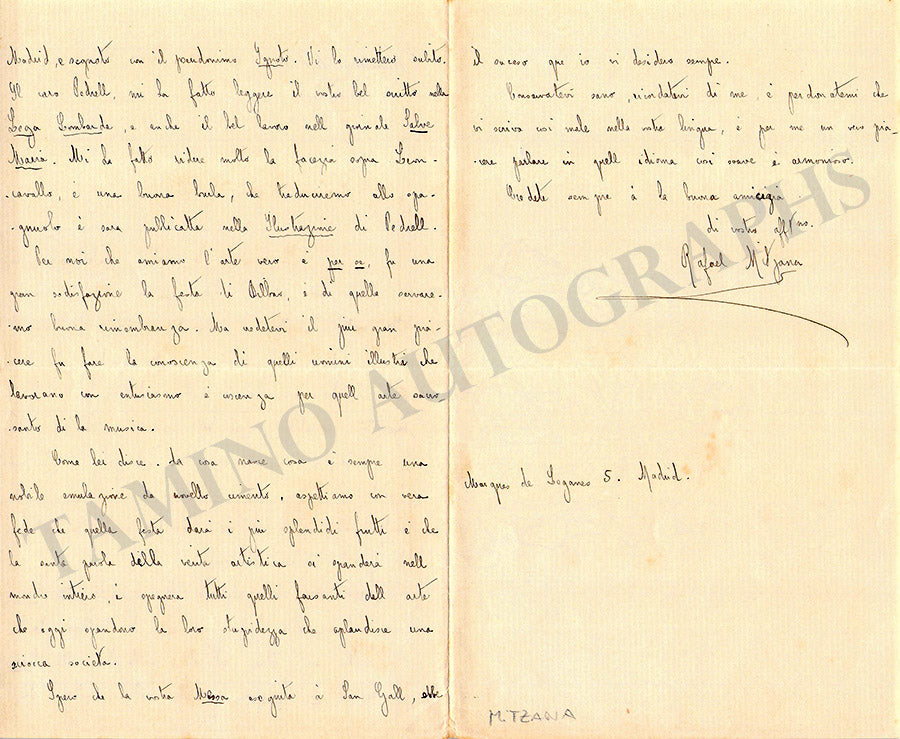 Madrid, e segnato con il pseudonimo Ignoto. Vi lo rimettero subito.
Il caro Pedrell, mi ha fatto leggere il vostro bel scritto nella
Lega Lombarda, e anche il bel lavoro nell giornale Salve
Maria. Mi ha fatto ridere molto la facezia sopra Leon-
-cavallo, è una buona burla, che traduciremo allo spa-
-gnuolo è sara publicatta nella Ilustrazione di Pedrell.
Per noi che amiamo l'arte vero e per se, fu una
gran sodisfazione la festa di Bilbao, è di quella servare-
-mo buona rimembranza. Ma credetevi il più gran pia-
-cere fu fare la conoscenza di quelli uomini illustri che
lavorano con entusiasmo è coscenza per quell arte sacro
santo di la musica.
Come lei disce. La cosa nasce cosa è sempre una
nobile emulazione da novello cimento, aspettiamo con vera
fede che quella festa dará i più splendidi frutti è che
la santa parola della verita artistica si spanderá nell
mondo intiero, è spegnera tutti quelli farsanti dell arte
che oggi spandono la loro stupidezza che aplaudisce una
sciocca societá.
Spero che la vostra Messa eseguita à San Gall, ebbe
il suceso que io vi desidero sempre.
Conservatevi sano, ricordatevi di me, è perdonatemi che
vi scriva cosi male nella vostra lingua, è per me un vero pia-
cere parlare in quell idioma cosi soave è armonioso.
Credete sempre á la buona amicizia
di vostro affmo.
Rafael Mitjana
Marques de Leganes 5. Madrid.
MITZANA
TAMINO AUTOGRAPHS